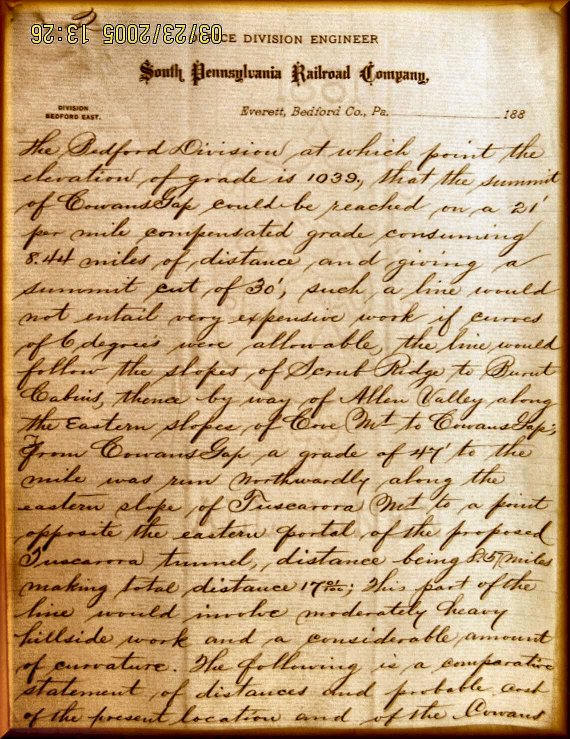 2
03/23/2005 13:26
OFFICE DIVISION ENGINEER
South Pennsylvania Railroad Company,
DIVISION
BEDFORD EAST.
Everett, Bedford Co., Pa. 188
the Bedford Division at which point the
elevation of grade is 1039, that the summit
of Cowans Gap could be reached on a 21'
per mile compensated grade consuming
8.44 miles of distance and giving a
summit cut of 30', such a line would
not entail very expensive work if curves
of 6 degrees were allowable, the line would
follow the slopes of Scrub Ridge to Burnt
Cabins, thence by way of Allen Valley along
the Eastern slopes of Cove Mt to Cowans Gap;
From Cowans Gap a grade of 47' to the
mile was run northwardly along the
eastern slope of Tuscarora Mt to a point
opposite the eastern portal of the proposed
Tuscarora tunnel, distance being 8.57 miles
making total distance 17 ; This part of the
line would involve moderately heavy
hillside work and a considerable amount
of curvature. The following is a comparative
statement of distances and probable cost
of the present location and of the Cowans